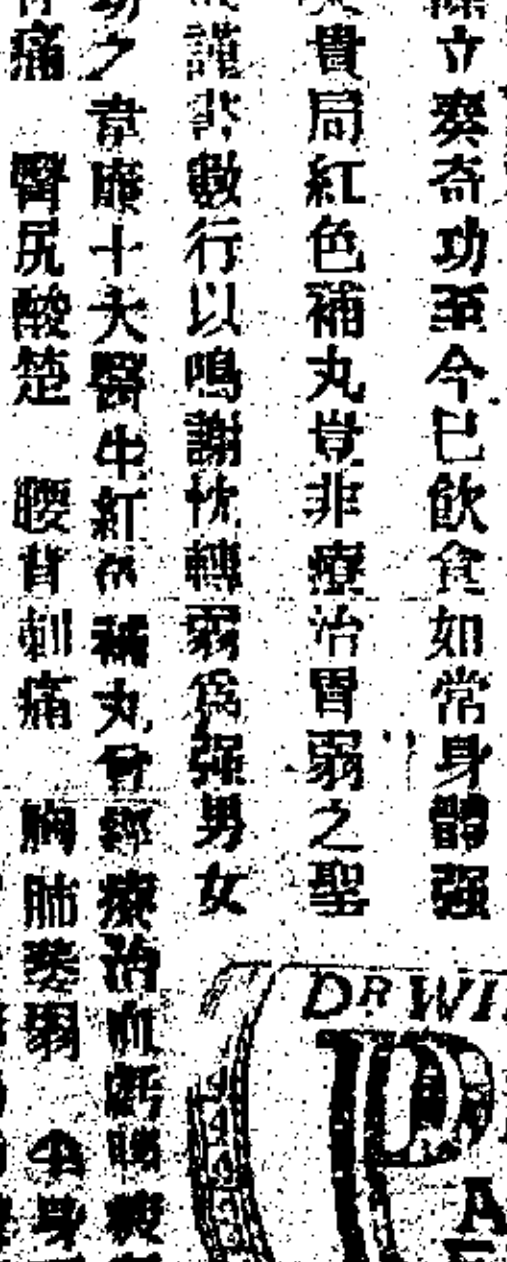 立奏奇功至今已飲食如常身體强
貴局紅色補丸豈非療治胃弱之聖
謹數行以鳴謝忱轉弱爲强男女
功之韋廉士大醫生紅色補丸曾經療治血虧
痛 臀尻酸楚 腰背刺痛 胸肺萎弱 半身
DR WI
P
A